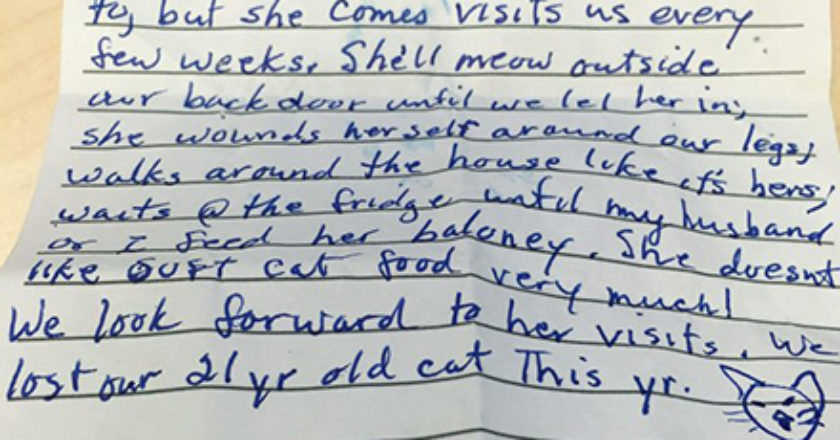 ty, but she comes visits us every
few weeks. She'll meow outside
our back door until we let her in;
she wounds herself around our legs;
walks around the house like it's hers;
waits @ the fridge until my husband
or I feed her baloney. She doesn't
like our cat food very much!
We look forward to her visits. We
lost our 21 yr old cat This yr.